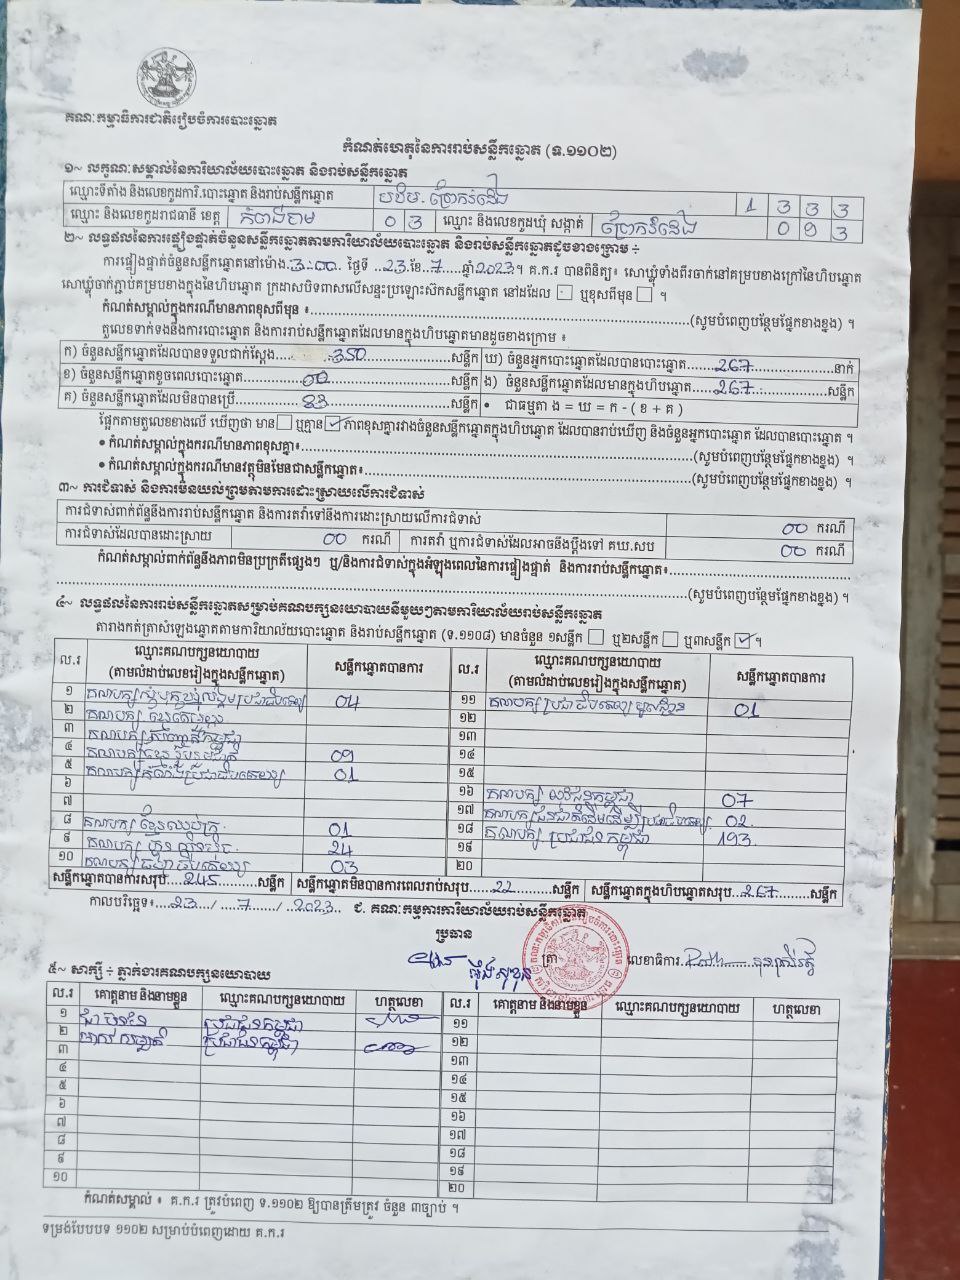 គណៈកម្មាធិការជាតិរៀបចំការបោះឆ្នោត
កំណត់ហេតុនៃការរាប់សន្លឹកឆ្នោត (ទ.១១០២)
១~ លក្ខណៈសម្គាល់នៃការិយាល័យបោះឆ្នោត និងរាប់សន្លឹកឆ្នោត
ឈ្មោះទីតាំង និងលេខកូដការិ.បោះឆ្នោត និងរាប់សន្លឹកឆ្នោត 1 3 3 3
ឈ្មោះ និងលេខកូដរាជធានី ខេត្ត កំពង់ចាម 0 3 ឈ្មោះ និងលេខកូដឃុំ សង្កាត់ 0 9 3
២~ លទ្ធផលនៃការផ្ទៀងផ្ទាត់ចំនួនសន្លឹកឆ្នោតតាមការិយាល័យបោះឆ្នោត និងរាប់សន្លឹកឆ្នោតដូចខាងក្រោម ÷
ការផ្ទៀងផ្ទាត់ចំនួនសន្លឹកឆ្នោតនៅម៉ោង 3:00 ថ្ងៃទី 23 ខែ 7 ឆ្នាំ 2023 ។ គ.ក.រ បានពិនិត្យ៖ សោឃ្មុំទាំងពីរចាក់នៅគម្របខាងក្រៅនៃហិបឆ្នោត
សោឃ្មុំចាក់ភ្ជាប់គម្របខាងក្នុងនៃហិបឆ្នោត ក្រដាសបិទពាសលើសន្ទះប្រឡោះស៊កសន្លឹកឆ្នោត នៅដដែល ឬខុសពីមុន ។
កំណត់សម្គាល់ក្នុងករណីមានភាពខុសពីមុន ៖ (សូមបំពេញបន្ថែមផ្នែកខាងខ្នង) ។
តួលេខទាក់ទងនឹងការបោះឆ្នោត និងការរាប់សន្លឹកឆ្នោតដែលមានក្នុងហិបឆ្នោតមានដូចខាងក្រោម ៖
ក) ចំនួនសន្លឹកឆ្នោតដែលបានទទួលជាក់ស្តែង 350 សន្លឹក ឃ) ចំនួនអ្នកបោះឆ្នោតដែលបានបោះឆ្នោត 267 នាក់
ខ) ចំនួនសន្លឹកឆ្នោតខូចពេលបោះឆ្នោត 00 សន្លឹក ង) ចំនួនសន្លឹកឆ្នោតដែលមានក្នុងហិបឆ្នោត 267 សន្លឹក
គ) ចំនួនសន្លឹកឆ្នោតដែលមិនបានប្រើ 83 សន្លឹក • ជាធម្មតា ង = ឃ = ក - ( ខ + គ )
ផ្អែកតាមតួលេខខាងលើ ឃើញថា មាន ឬគ្មាន ភាពខុសគ្នារវាងចំនួនសន្លឹកឆ្នោតក្នុងហិបឆ្នោត ដែលបានរាប់ឃើញ និងចំនួនអ្នកបោះឆ្នោត ដែលបានបោះឆ្នោត ។
• កំណត់សម្គាល់ក្នុងករណីមានភាពខុសគ្នា៖ (សូមបំពេញបន្ថែមផ្នែកខាងខ្នង) ។
• កំណត់សម្គាល់ក្នុងករណីមានវត្ថុមិនមែនជាសន្លឹកឆ្នោត៖ (សូមបំពេញបន្ថែមផ្នែកខាងខ្នង) ។
៣~ ការជំទាស់ និងការមិនយល់ព្រមតាមការដោះស្រាយលើការជំទាស់
ការជំទាស់ពាក់ព័ន្ធនឹងការរាប់សន្លឹកឆ្នោត និងការតវ៉ាទៅនឹងការដោះស្រាយលើការជំទាស់ 00 ករណី
ការជំទាស់ដែលបានដោះស្រាយ 00 ករណី ការតវ៉ា ឬការជំទាស់ដែលអាចនឹងប្តឹងទៅ គឃ.សប 00 ករណី
កំណត់សម្គាល់ពាក់ព័ន្ធនឹងភាពមិនប្រក្រតីផ្សេងៗ ឬ/និងការជំទាស់ក្នុងអំឡុងពេលនៃការផ្ទៀងផ្ទាត់ និងការរាប់សន្លឹកឆ្នោត៖
(សូមបំពេញបន្ថែមផ្នែកខាងខ្នង) ។
៤~ លទ្ធផលនៃការរាប់សន្លឹកឆ្នោតសម្រាប់គណបក្សនយោបាយនីមួយៗតាមការិយាល័យរាប់សន្លឹកឆ្នោត
តារាងកត់ត្រាសំឡេងឆ្នោតតាមការិយាល័យបោះឆ្នោត និងរាប់សន្លឹកឆ្នោត (ទ.១១០៨) មានចំនួន ១សន្លឹក ឬ២សន្លឹក ឬ៣សន្លឹក ។
ល.រ ឈ្មោះគណបក្សនយោបាយ (តាមលំដាប់លេខរៀងក្នុងសន្លឹកឆ្នោត) សន្លឹកឆ្នោតបានការ ល.រ ឈ្មោះគណបក្សនយោបាយ (តាមលំដាប់លេខរៀងក្នុងសន្លឹកឆ្នោត) សន្លឹកឆ្នោតបានការ
១ 04 ១១ 01
២ ១២
៣ ១៣
៤ 09 ១៤
៥ 01 ១៥
៦ ១៦ 07
៧ ១៧ 02
៨ គណបក្ស ខ្មែរឈប់ក្រ 01 ១៨ គណបក្ស ប្រជាជនកម្ពុជា 193
៩ 24 ១៩
១០ 03 ២០
សន្លឹកឆ្នោតបានការសរុប 245 សន្លឹក សន្លឹកឆ្នោតមិនបានការពេលរាប់សរុប 22 សន្លឹក សន្លឹកឆ្នោតក្នុងហិបឆ្នោតសរុប 267 សន្លឹក
កាលបរិច្ឆេទ៖ 23 / 7 / 2023 ជ. គណៈកម្មការការិយាល័យរាប់សន្លឹកឆ្នោត
ប្រធាន
ត្រា លេខាធិការ
៥~ សាក្សី ÷ ភ្នាក់ងារគណបក្សនយោបាយ
ល.រ គោត្តនាម និងនាមខ្លួន ឈ្មោះគណបក្សនយោបាយ ហត្ថលេខា ល.រ គោត្តនាម និងនាមខ្លួន ឈ្មោះគណបក្សនយោបាយ ហត្ថលេខា
១ ប្រជាជនកម្ពុជា ១១
២ ប្រជាជនកម្ពុជា ១២
៣ ១៣
៤ ១៤
៥ ១៥
៦ ១៦
៧ ១៧
៨ ១៨
៩ ១៩
១០ ២០
កំណត់សម្គាល់ ៖ គ.ក.រ ត្រូវបំពេញ ទ.១១០២ ឱ្យបានត្រឹមត្រូវ ចំនួន ៣ច្បាប់ ។
ទម្រង់បែបបទ ១១០២ សម្រាប់បំពេញដោយ គ.ក.រ